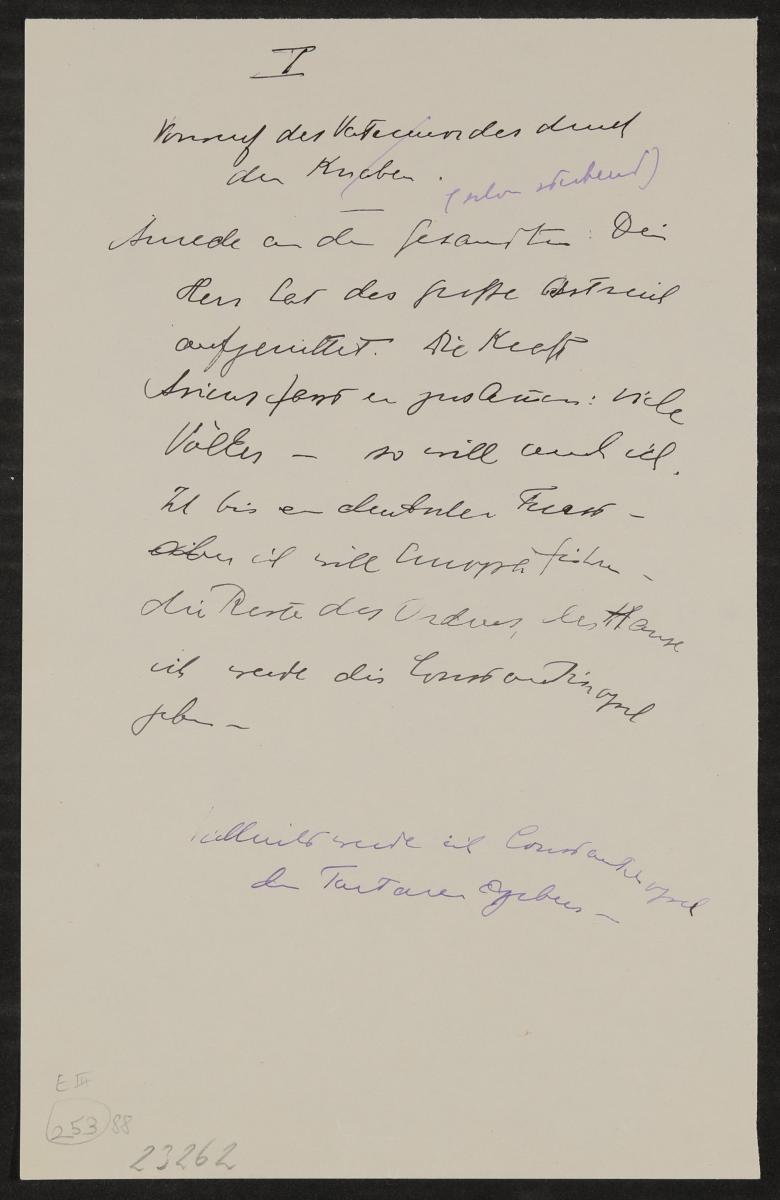 I
Vorwurf des Vatermordes durch
den Knaben.
(schon sterbend)
Anrede an den Gesandten: Dein
Herr hat das große Ostreich
aufgerüttelt. Die Kraft
Asiens fasst er zusammen: viele
Völker – so will auch ich.
Ich bin ein deutscher Fürst –
aber ich will Europa führen –
die Reste des Ordens, der Hanse
ich werde dir Constantinopel
geben –
Vielleicht werde ich Constantinopel
den Tartaren geben –
E III
253 88
23262